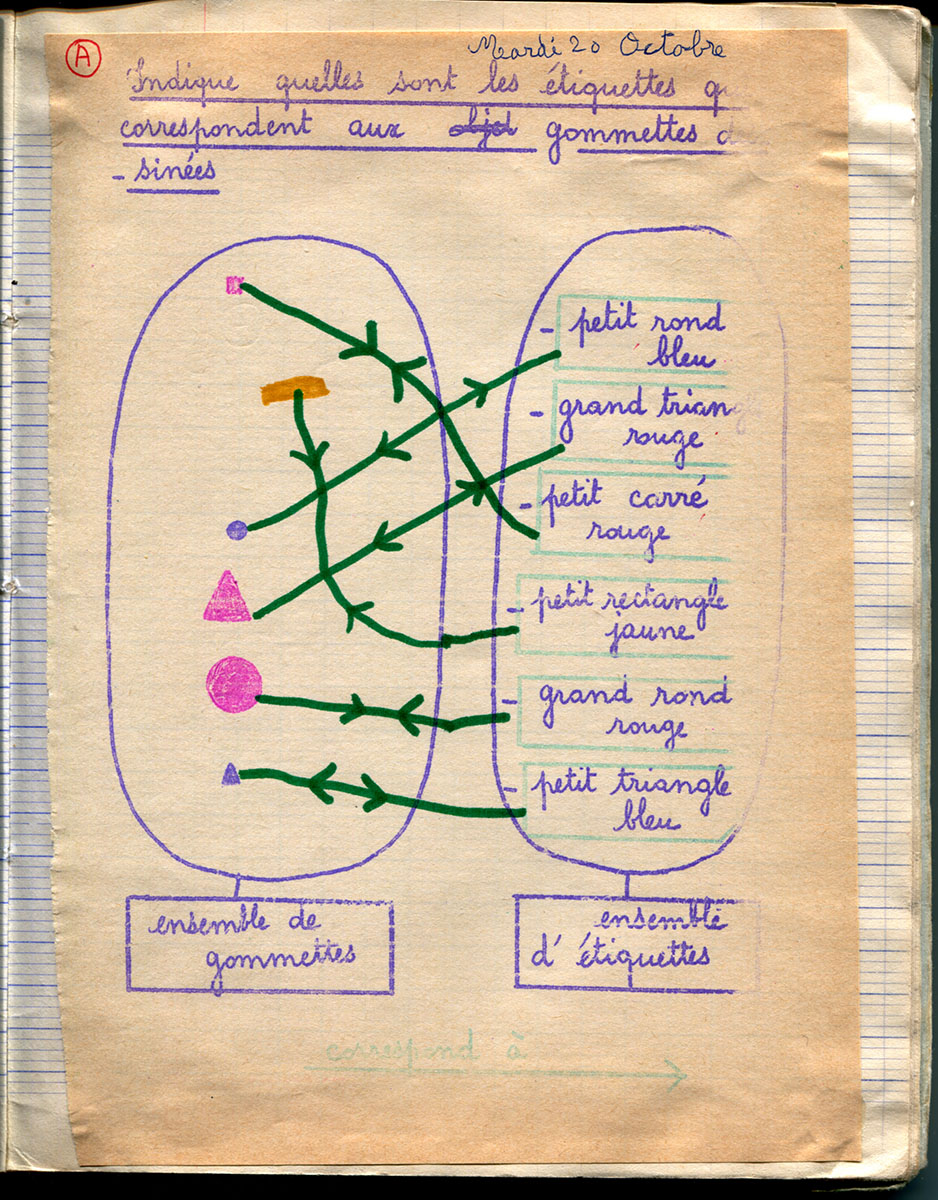 A
Mardi 20 Octobre
Indique quelles sont les étiquettes q
correspondent aux objet gommettes d
- sinées
- petit rond
bleu
- grand triang
rouge
- petit carré
rouge
- petit rectangle
jaune
- grand rond
rouge
- petit triangle
bleu
ensemble de
gommettes
ensemble
d'étiquettes
correspond à